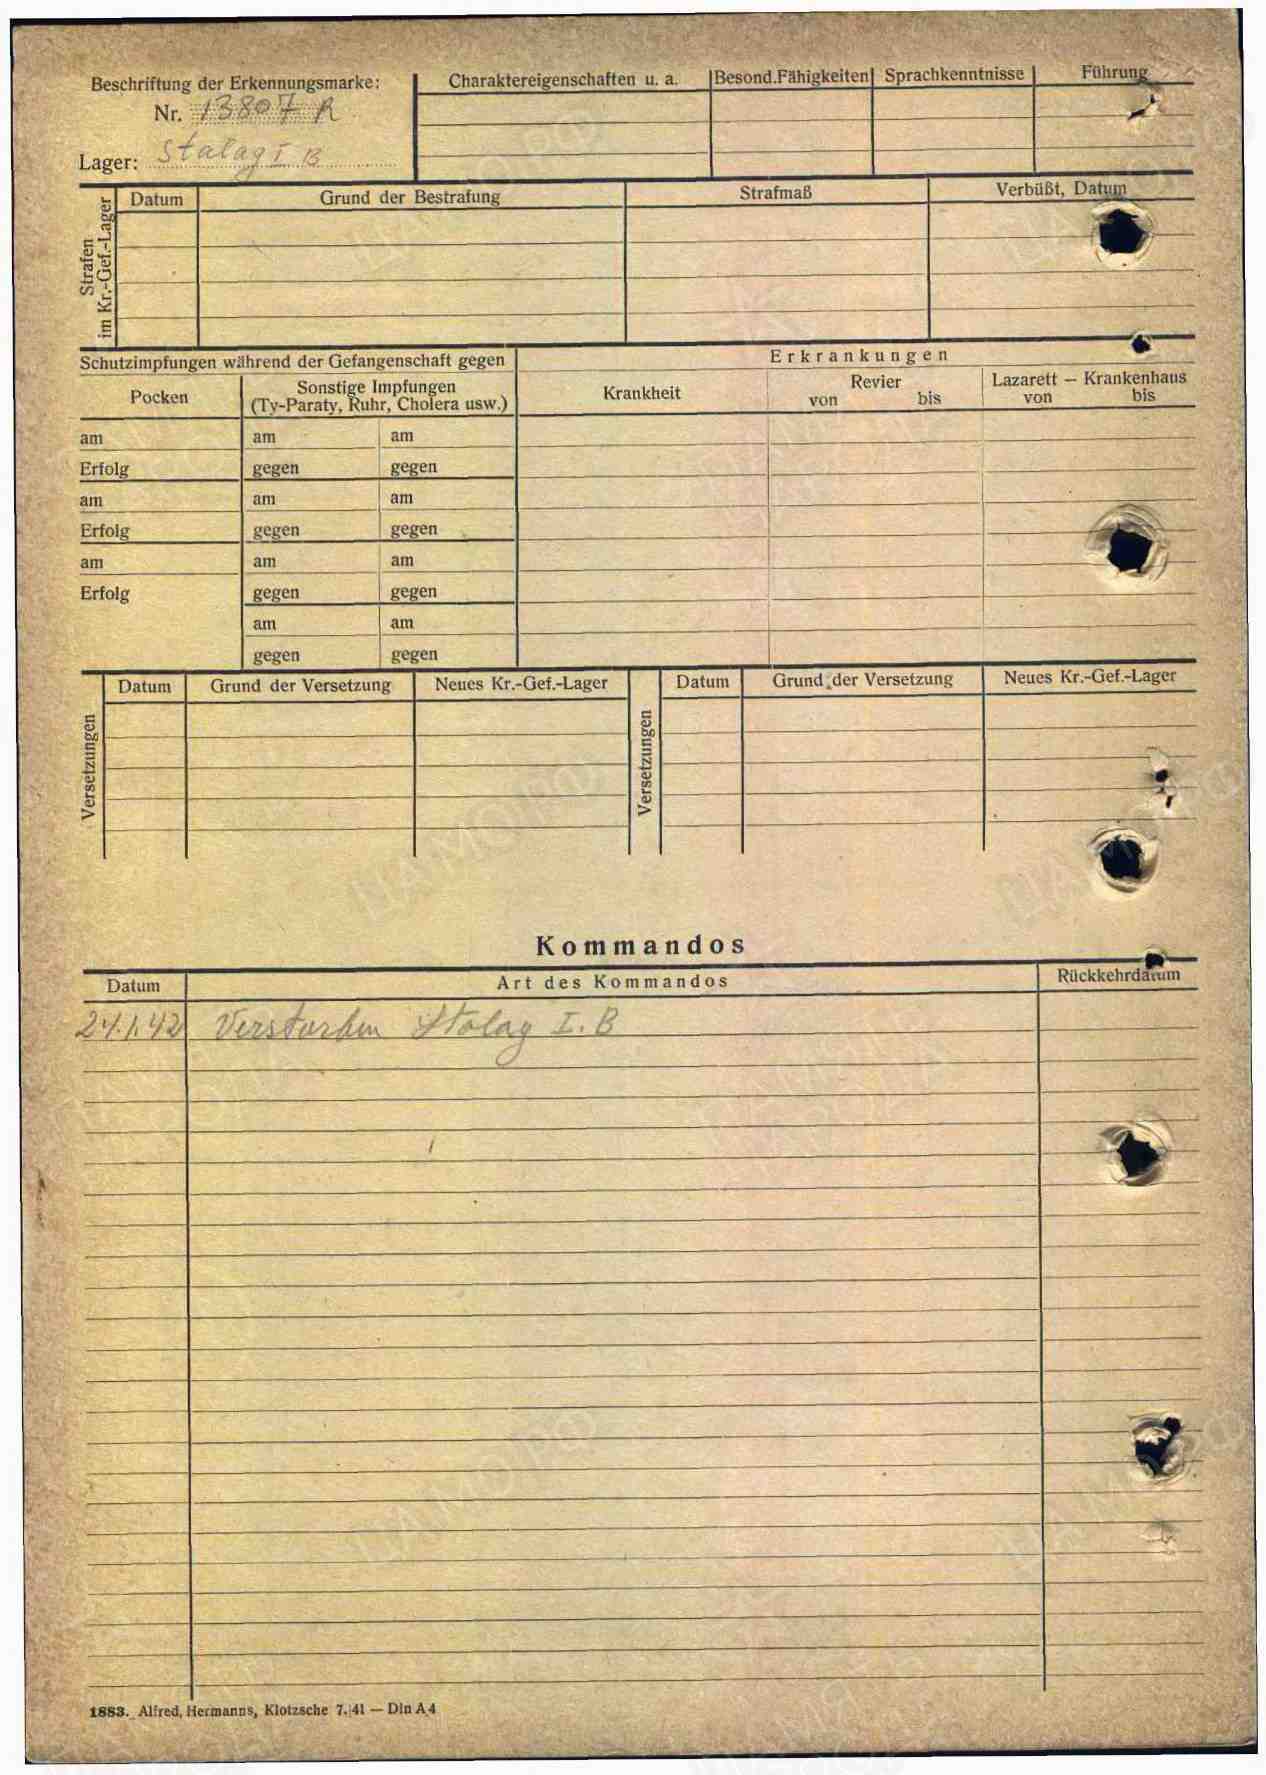 Beschriftung der Erkennungsmarke:
Nr. 13807 R
Lager: Stalag I B
Charaktereigenschaften u. a. Besond.Fähigkeiten Sprachkenntnisse Führung
Strafen im Kr.-Gef.-Lager
Datum Grund der Bestrafung Strafmaß Verbüßt, Datum
Schutzimpfungen während der Gefangenschaft gegen
Pocken Sonstige Impfungen
(Ty-Paraty, Ruhr, Cholera usw.)
am am am
Erfolg gegen gegen
am am am
Erfolg gegen gegen
am am am
Erfolg gegen gegen
am am
gegen gegen
Erkrankungen
Krankheit Revier Lazarett – Krankenhaus
von bis von bis
Versetzungen
Datum Grund der Versetzung Neues Kr.-Gef.-Lager
Versetzungen
Datum Grund der Versetzung Neues Kr.-Gef.-Lager
Kommandos
Datum Art des Kommandos Rückkehrdatum
24.1.42 Verstorben Stalag I. B
1883. Alfred Hermanns, Klotzsche 7. 41 — Din A 4
ЦАМО РФ